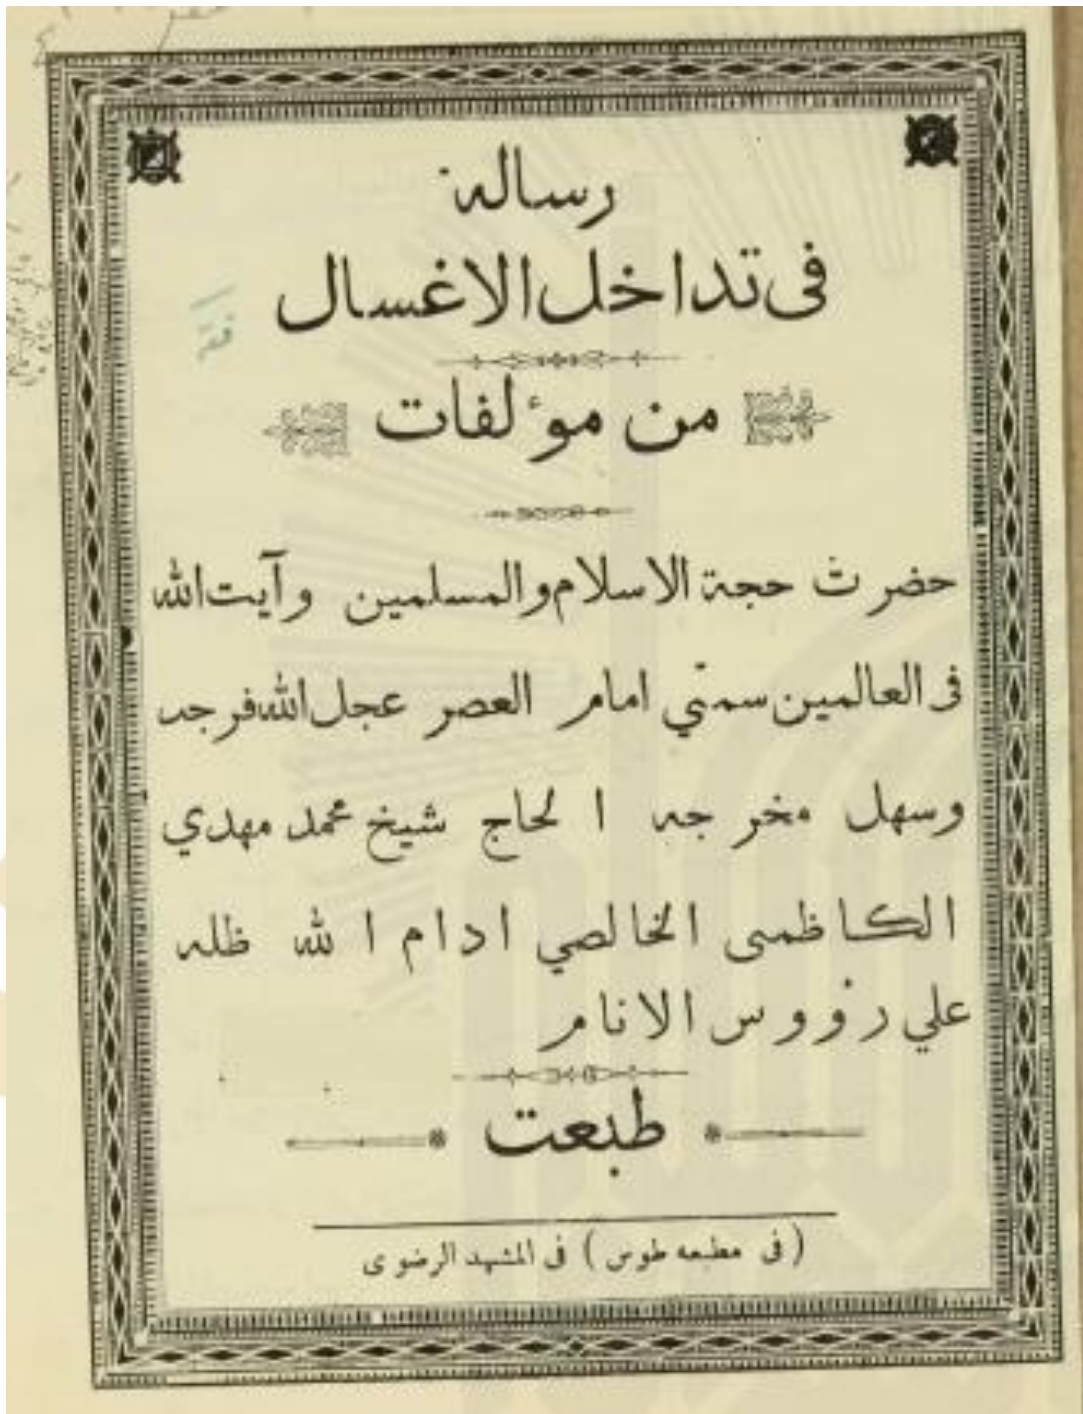 رساله
فى تداخل الاغسال
فقه
من مؤلفات
حضرت حجة الاسلام والمسلمين وآيت الله
فى العالمين سمّي امام العصر عجل الله فرجه
وسهل مخرجه الحاج شيخ محمد مهدي
الكاظمى الخالصي ادام الله ظله
علي رؤوس الانام
طبعت
(فى مطبعه طوس) فى المشهد الرضوى